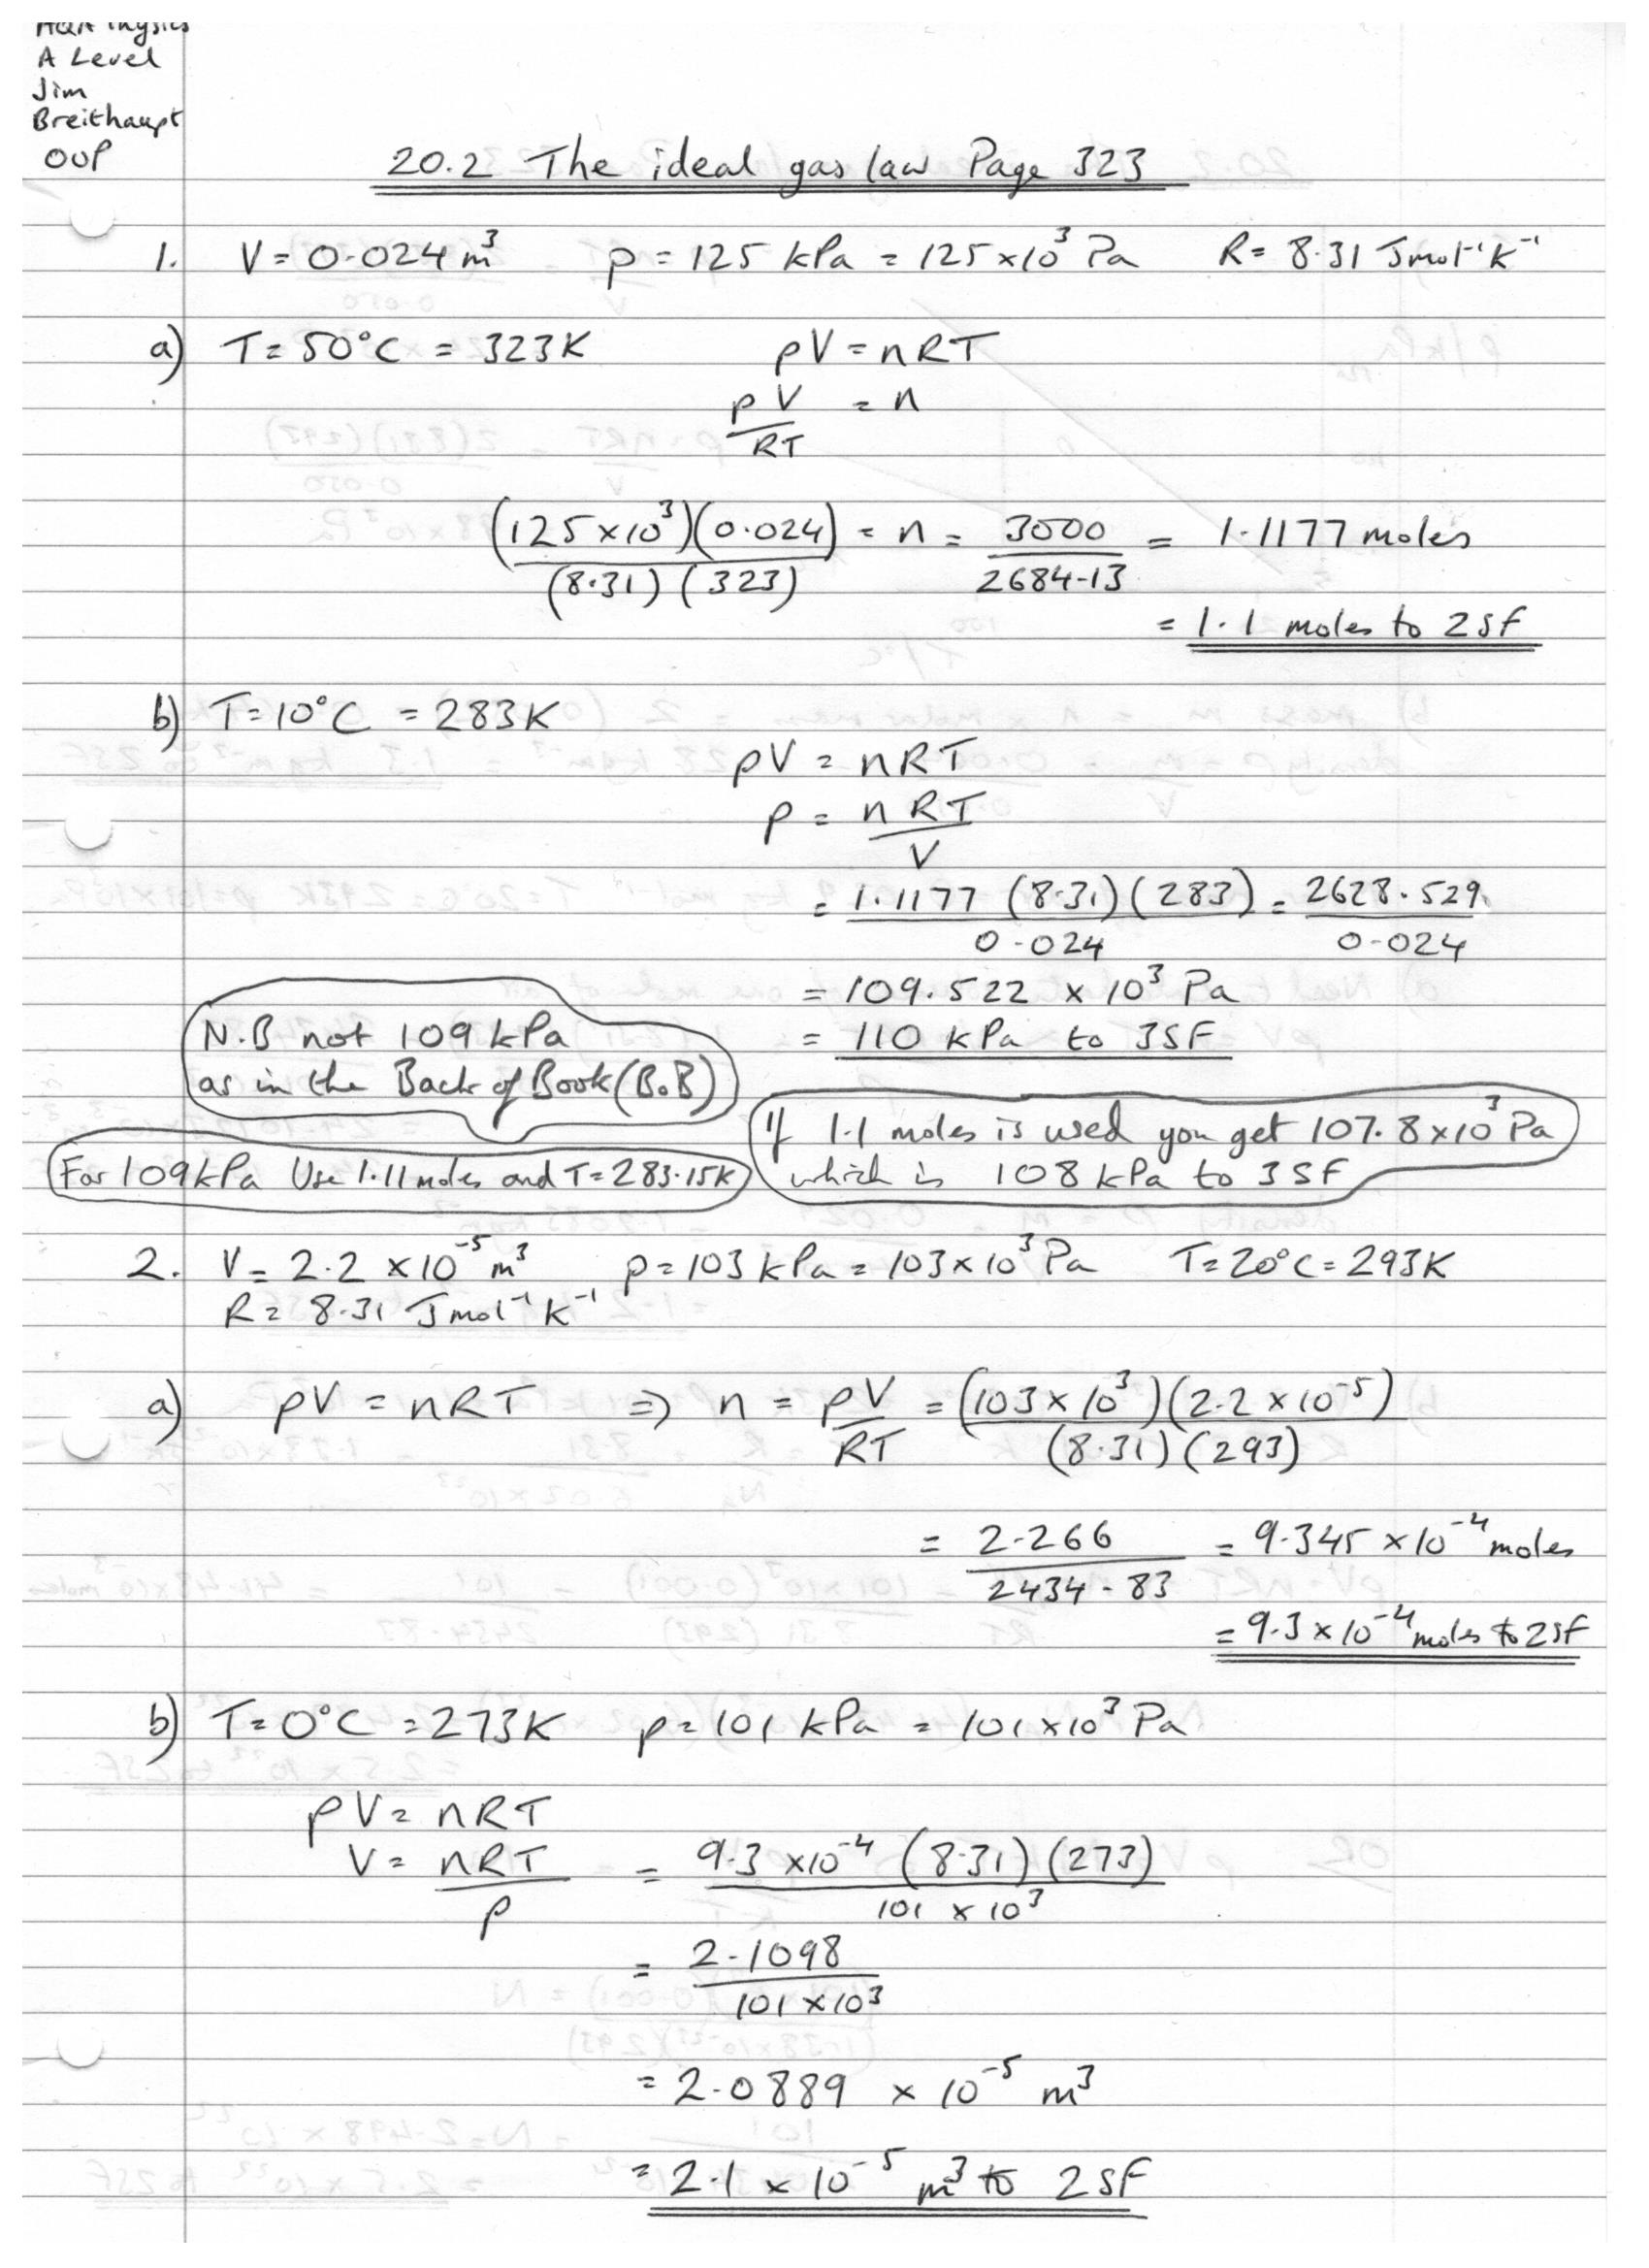 AQA Physics
A Level
Jim
Breithaupt
OUP
20.2 The ideal gas law Page 323
1. V = 0.024 m³ p = 125 kPa = 125 × 10³ Pa R = 8.31 Jmol⁻¹K⁻¹
a) T = 50°C = 323K pV = nRT
pV/RT = n
(125 × 10³)(0.024)/(8.31)(323) = n = 3000/2684.13 = 1.1177 moles
= 1.1 moles to 2SF
b) T = 10°C = 283K
pV = nRT
p = nRT/V
= 1.1177 (8.31)(283)/0.024 = 2628.529/0.024
= 109.522 × 10³ Pa
= 110 kPa to 3SF
N.B not 109 kPa
as in the Back of Book (B.B)
If 1.1 moles is used you get 107.8 × 10³ Pa
which is 108 kPa to 3SF
For 109kPa Use 1.11 moles and T = 283.15K
2. V = 2.2 × 10⁻⁵ m³ p = 103 kPa = 103 × 10³ Pa T = 20°C = 293K
R = 8.31 Jmol⁻¹K⁻¹
a) pV = nRT ⇒ n = pV/RT = (103 × 10³)(2.2 × 10⁻⁵)/(8.31)(293)
= 2.266/2434.83 = 9.345 × 10⁻⁴ moles
= 9.3 × 10⁻⁴ moles to 2SF
b) T = 0°C = 273K p = 101 kPa = 101 × 10³ Pa
pV = nRT
V = nRT/p = 9.3 × 10⁻⁴ (8.31)(273)/101 × 10³
= 2.1098/101 × 10³
= 2.0889 × 10⁻⁵ m³
= 2.1 × 10⁻⁵ m³ to 2SF